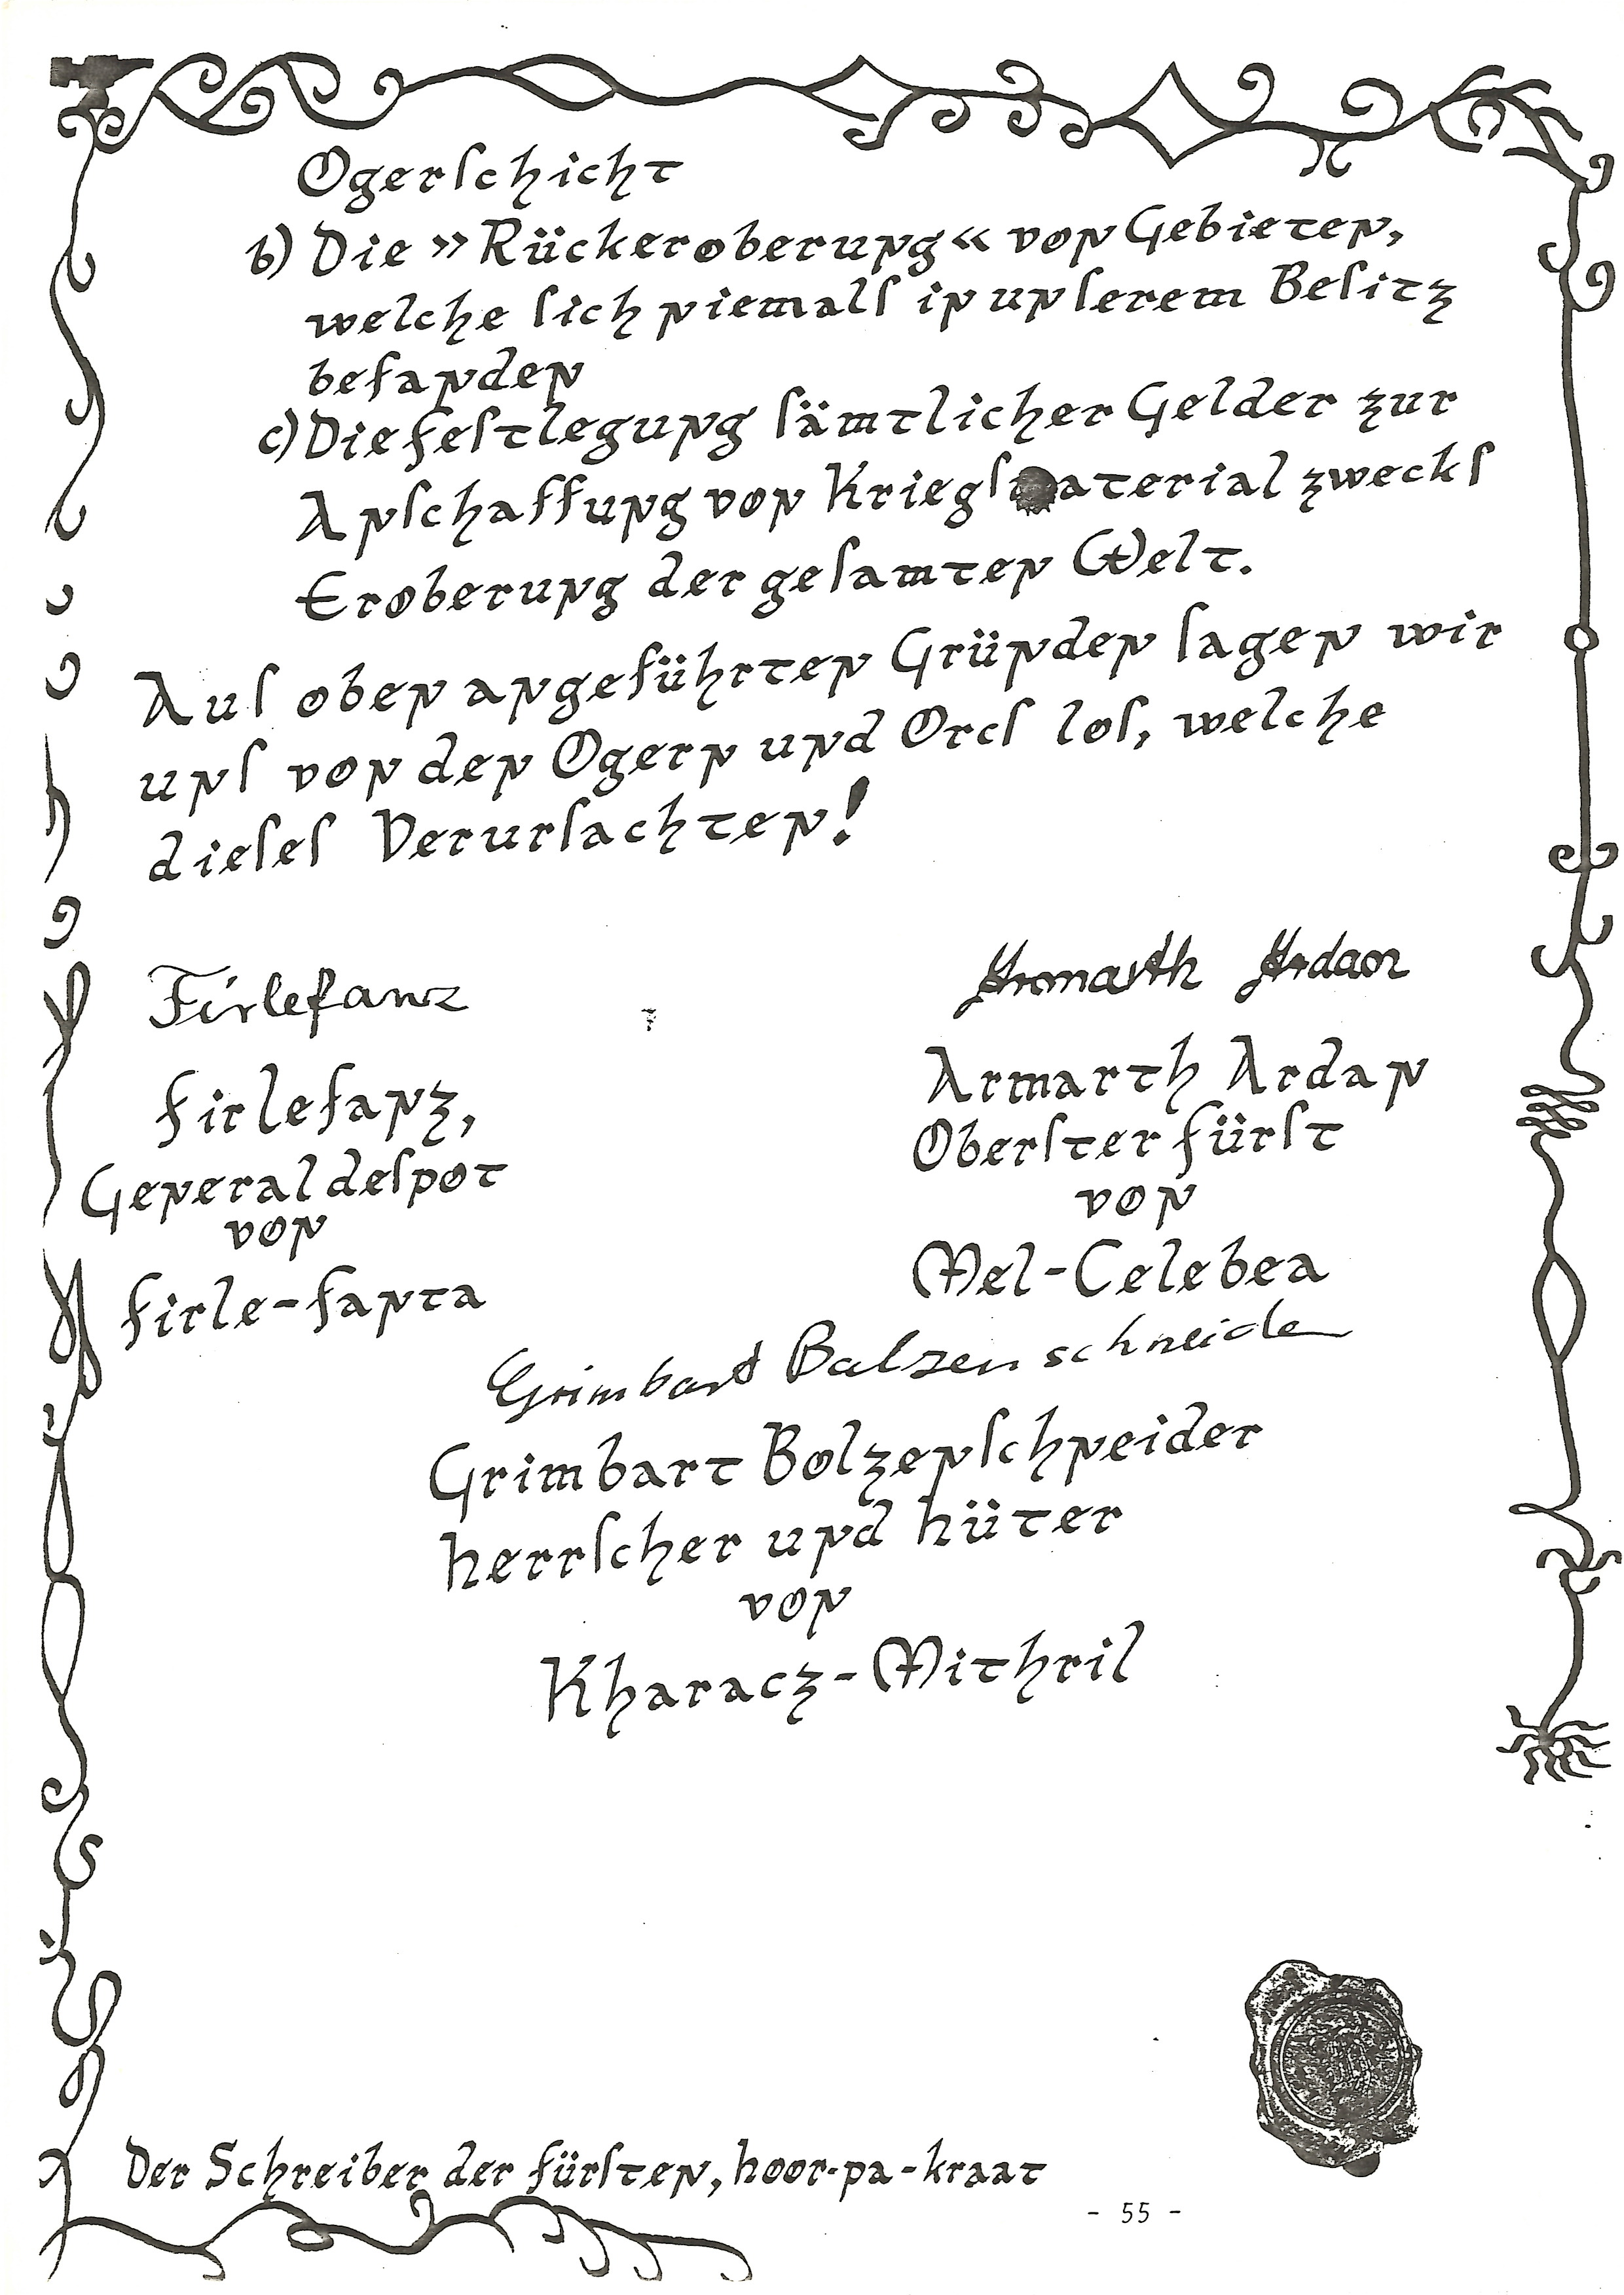 Ogerschicht
b) Die »Rückeroberung« von Gebieten,
welche sich niemals in unserem Besitz
befanden
c) Die Festlegung sämtlicher Gelder zur
Anschaffung von Kriegsmaterial zwecks
Eroberung der gesamten Welt.
Aus oben angeführten Gründen sagen wir
uns von den Ogern und Orcs los, welche
dieses Verursachten!
Firlefanz
Armarth Ardan
Firlefanz,
Generaldespot
von
Firle-Fanta
Armarth Ardan
Oberster Fürst
von
Mel-Celebea
Grimbart Bolzenschneider
Grimbart Bolzenschneider
Herrscher und Hüter
von
Kharacz-Mithril
Der Schreiber der Fürsten, Hoor-pa-kraat
- 55 -